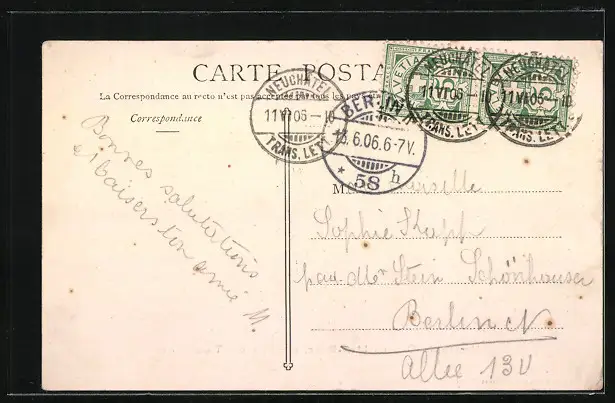 CARTE POSTA
La Correspondance au recto n'est pas acceptée par tous les pays
Correspondance
NEUCHATEL
11 VI 06 - 10
TRANS. LETT.
BERLIN
13. 6. 06. 6-7V.
* 58 h
HELVETIA
NEUCHATEL
11 VI 06 - 10
TRANS. LETT.
NEUCHATEL
11 VI 06 - 10
TRANS. LETT.
Bonnes salutations
et baisers ton amie M.
Sophie
Stein Schönhauser
Berlin N
Allee 130